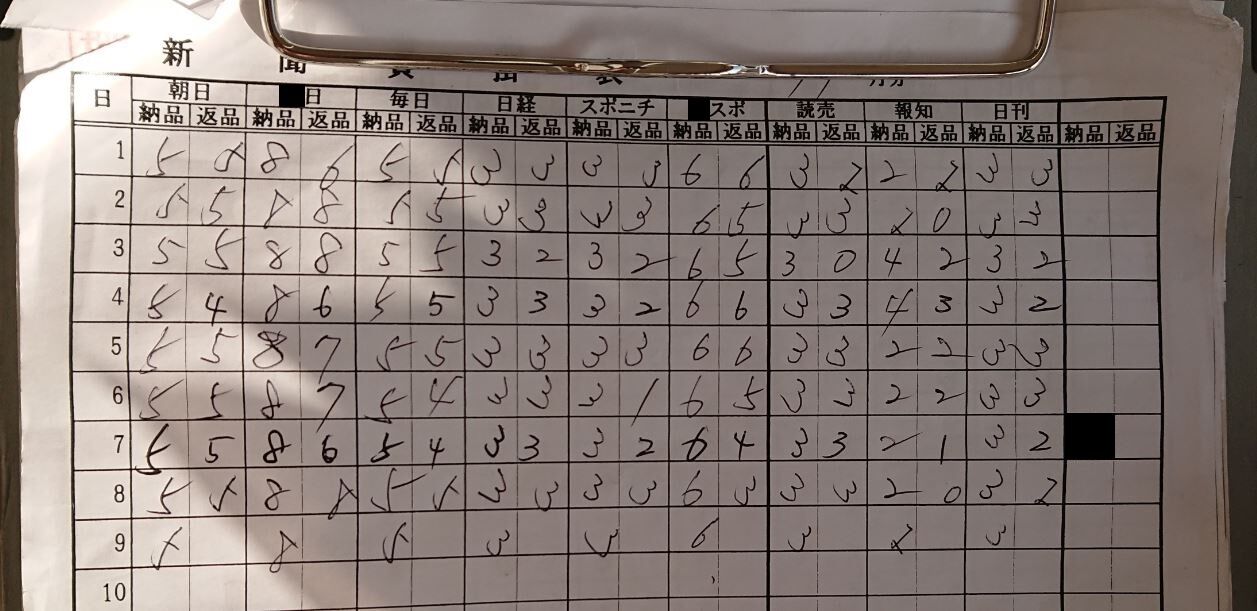 新 聞
日 朝日 日 毎日 日経 スポニチ スポ 読売 報知 日刊
納品 返品 納品 返品 納品 返品 納品 返品 納品 返品 納品 返品 納品 返品 納品 返品 納品 返品 納品 返品
1 5 8 6 5 3 3 3 3 6 6 3 2 2 2 3 3
2 5 5 8 8 5 5 3 3 3 3 6 5 3 3 2 0 3 3
3 5 5 8 8 5 5 3 2 3 2 6 5 3 0 4 2 3 2
4 5 4 8 6 5 5 3 3 3 2 6 6 3 3 4 3 3 2
5 5 5 8 7 5 5 3 3 3 3 6 6 3 3 2 2 3 3
6 5 5 8 7 5 4 3 3 3 1 6 5 3 3 2 2 3 3
7 5 5 8 6 5 4 3 3 3 2 6 4 3 3 2 1 3 2
8 5 5 8 8 5 5 3 3 3 3 6 3 3 3 2 0 3 2
9 5 8 5 3 3 6 3 2 3
10